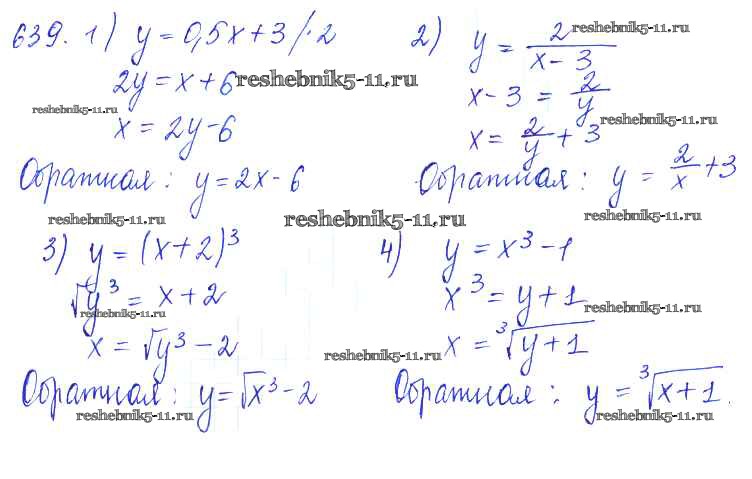 639. 1) y = 0,5x + 3 / · 2
2y = x + 6
x = 2y - 6
Обратная: y = 2x - 6
2) y = 2/(x - 3)
x - 3 = 2/y
x = 2/y + 3
Обратная: y = 2/x + 3
3) y = (x + 2)³
√y³ = x + 2
x = √y³ - 2
Обратная: y = √x³ - 2
4) y = x³ - 1
x³ = y + 1
x = ³√(y + 1)
Обратная: y = ³√(x + 1).
reshebnik5-11.ru
reshebnik5-11.ru
reshebnik5-11.ru
reshebnik5-11.ru
reshebnik5-11.ru
reshebnik5-11.ru
reshebnik5-11.ru
reshebnik5-11.ru
reshebnik5-11.ru
reshebnik5-11.ru
reshebnik5-11.ru
reshebnik5-11.ru